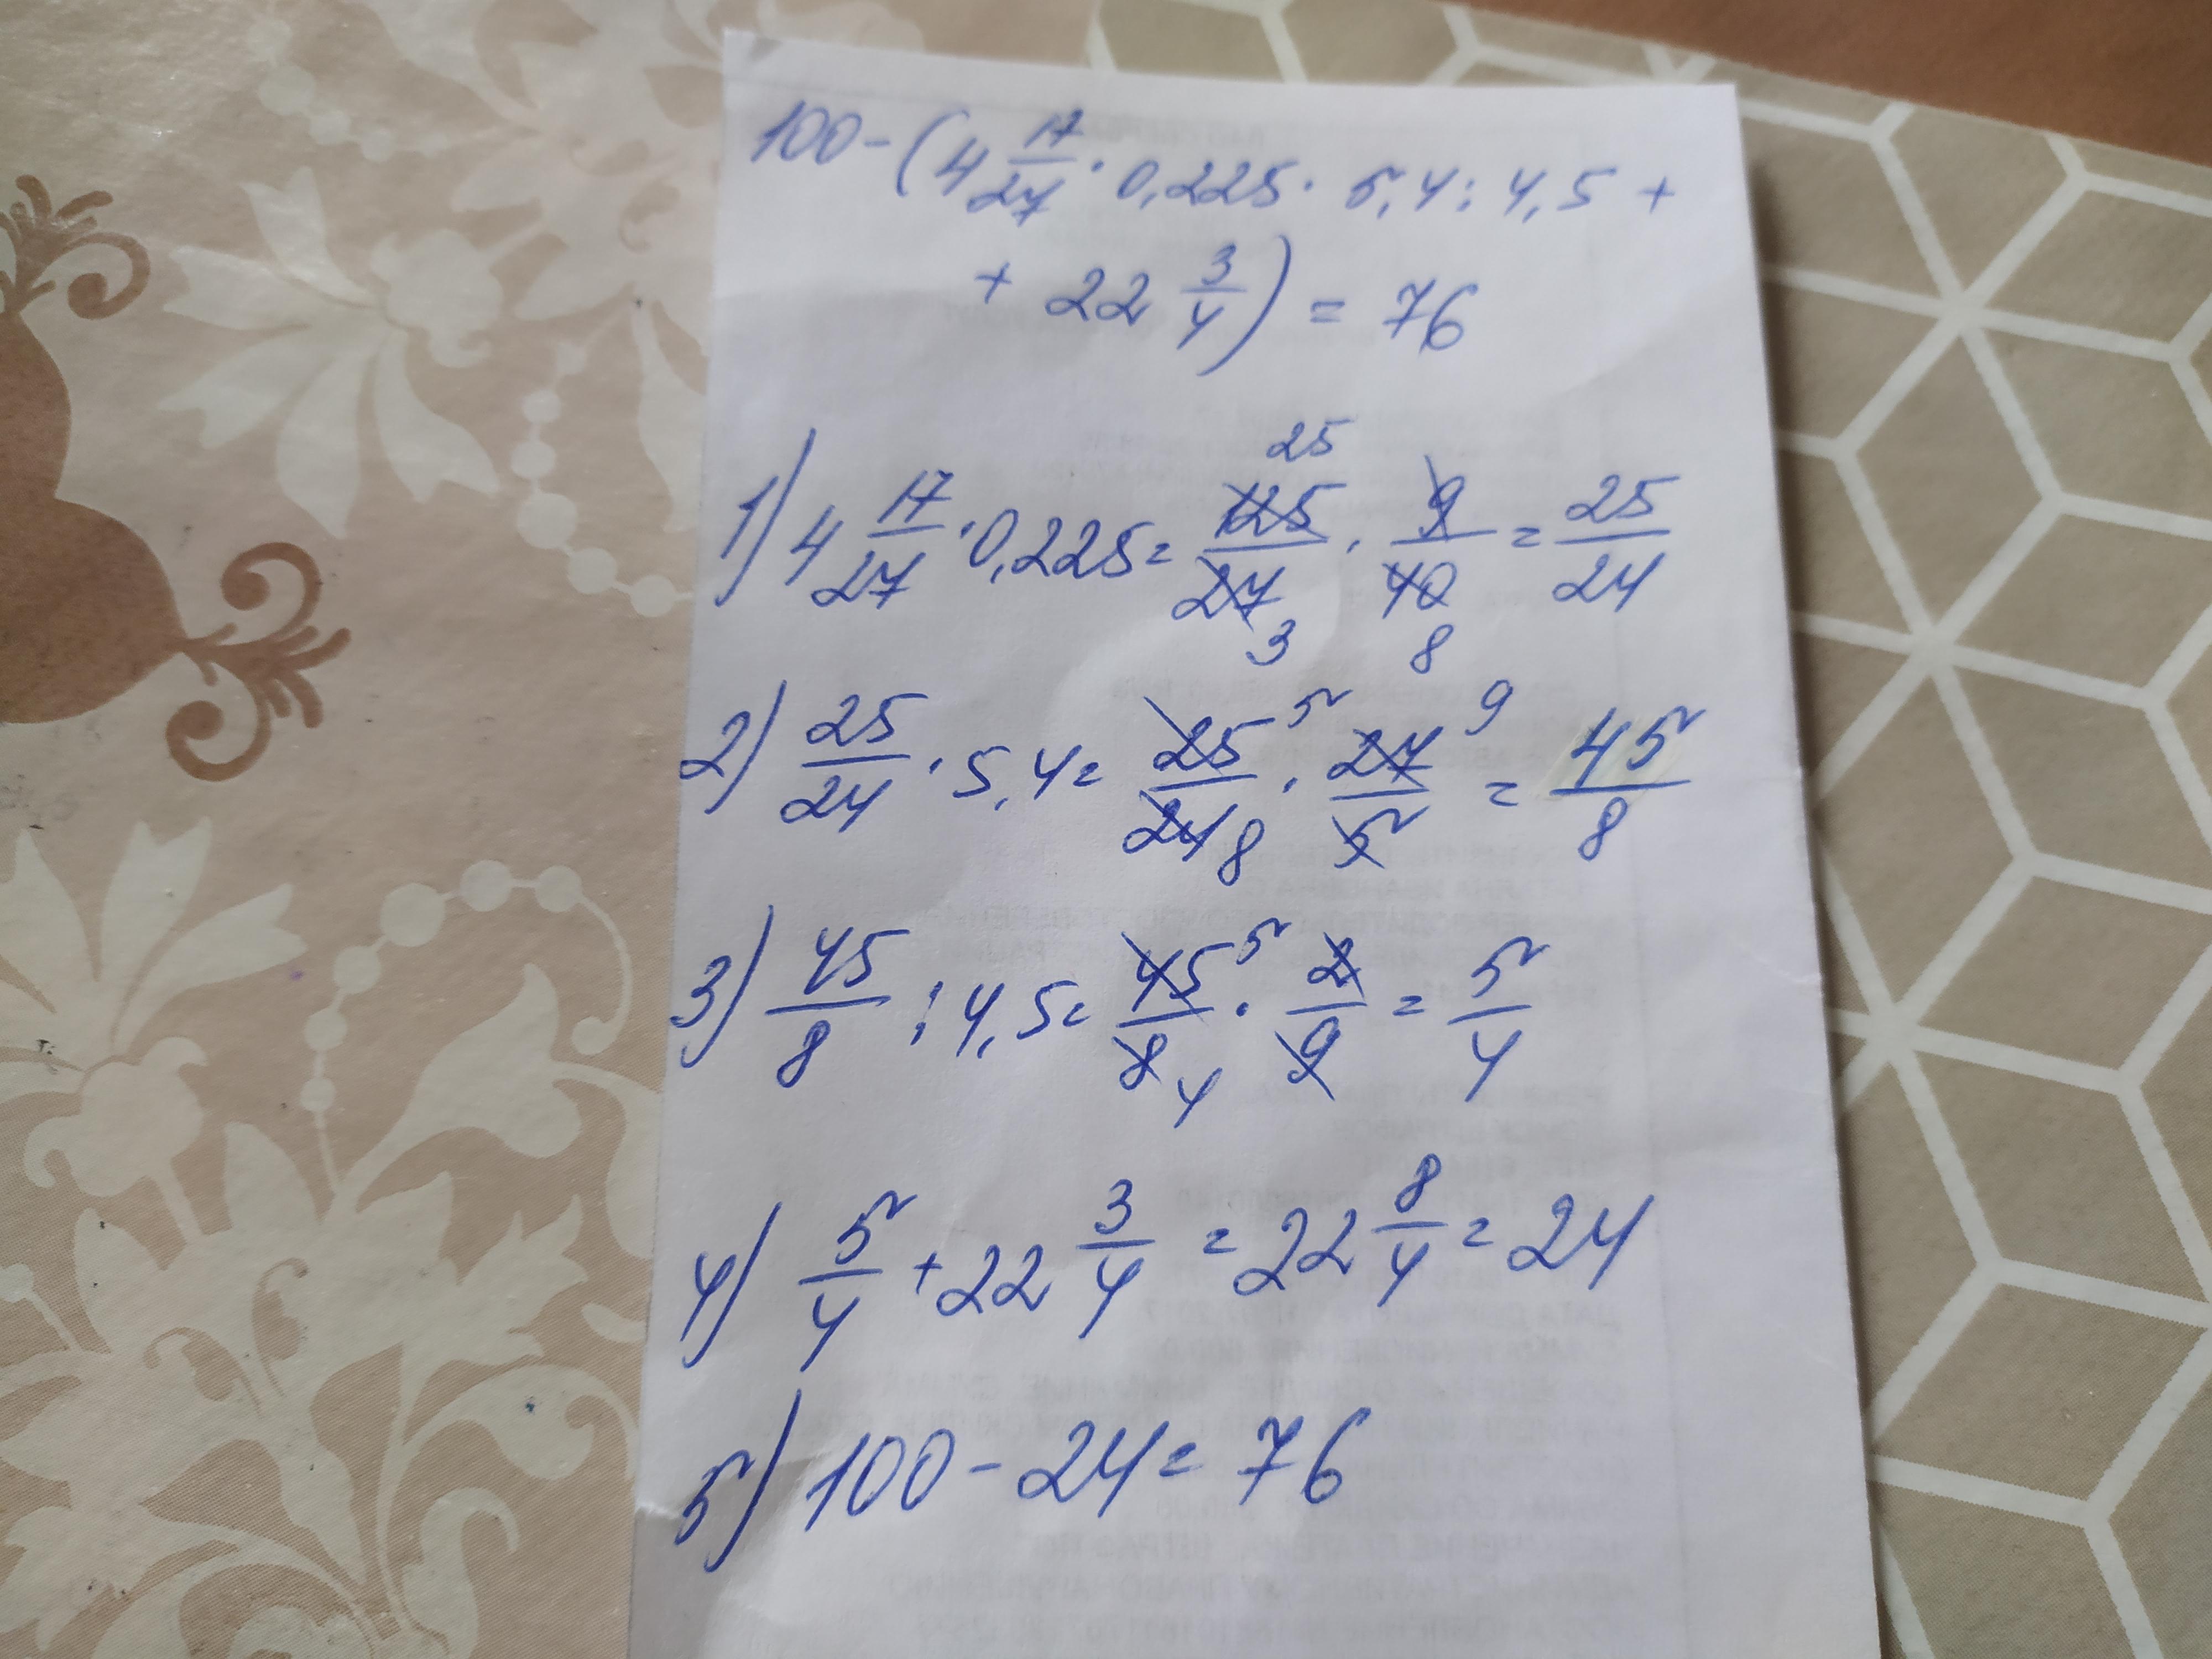 100 - (4 17/27 · 0,225 · 5,4 : 4,5 +
+ 22 3/4) = 76
1) 4 17/27 · 0,225 = 125/27 · 9/40 = 25/24
25
3 8
2) 25/24 · 5,4 = 25/24 · 27/5 = 45/8
5 9
8
3) 45/8 : 4,5 = 45/8 · 2/9 = 5/4
5
4
4) 5/4 + 22 3/4 = 22 8/4 = 24
5) 100 - 24 = 76